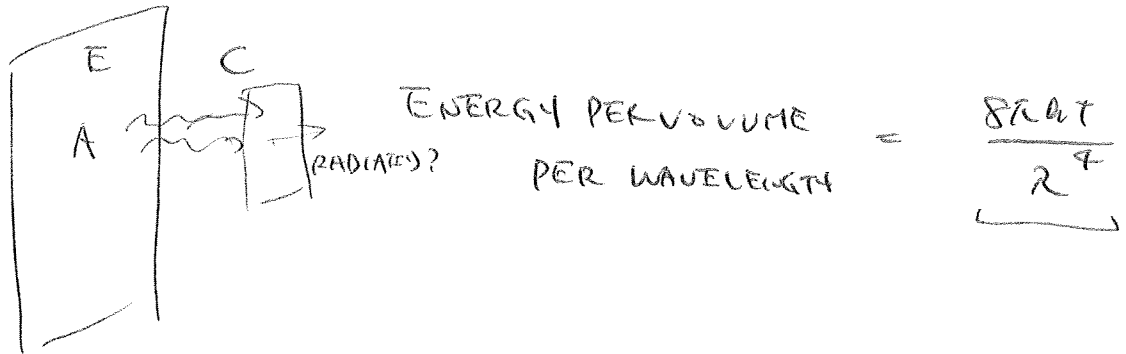 E C
A
RADIATED?
ENERGY PER VOLUME
PER WAVELENGTH
= 8πkT
λ^4